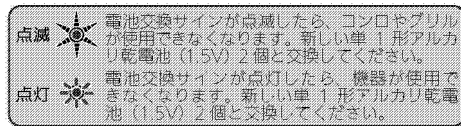 点滅
電池交換サインが点滅したら、コンロやグリル
が使用できなくなります。新しい単１形アルカ
リ乾電池（1.5V）２個と交換してください。
点灯
電池交換サインが点灯したら、機器が使用で
きなくなります。新しい単１形アルカリ乾電
池（1.5V）２個と交換してください。